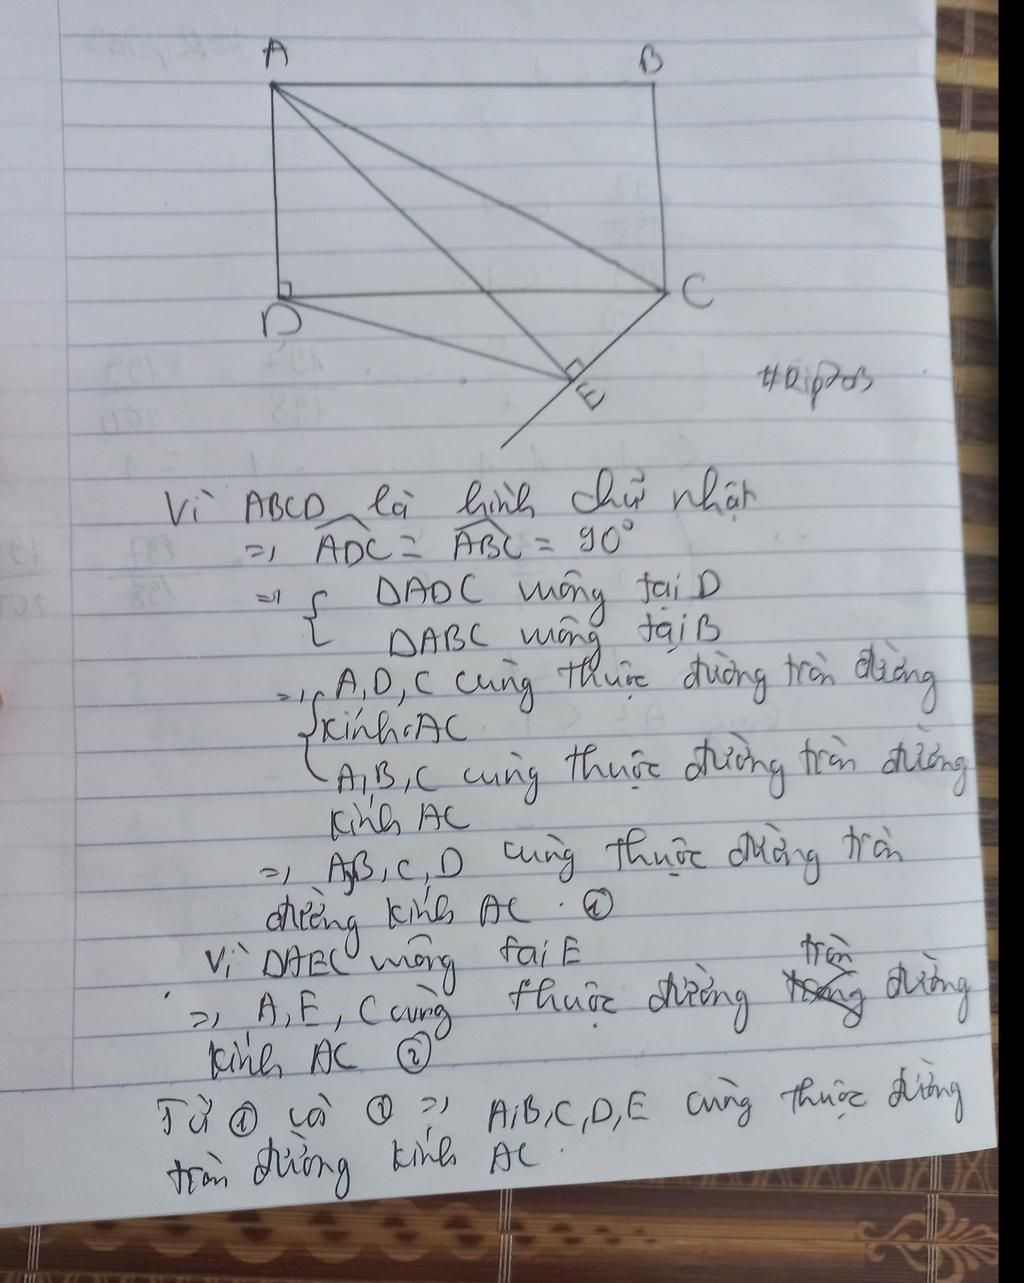 A B
D C
E
Vì ABCD là hình chữ nhật
=> ADC = ABC = 90°
=> { ΔADC vuông tại D
ΔABC vuông tại B
=> { A, D, C cùng thuộc đường tròn đường
kính AC
A, B, C cùng thuộc đường tròn đường
kính AC
=> A, B, C, D cùng thuộc đường tròn
đường kính AC. ①
Vì ΔAEC vuông tại E
tròn
=> A, E, C cùng thuộc đường đường
kính AC ②
Từ ① và ① => A, B, C, D, E cùng thuộc đường
tròn đường kính AC.